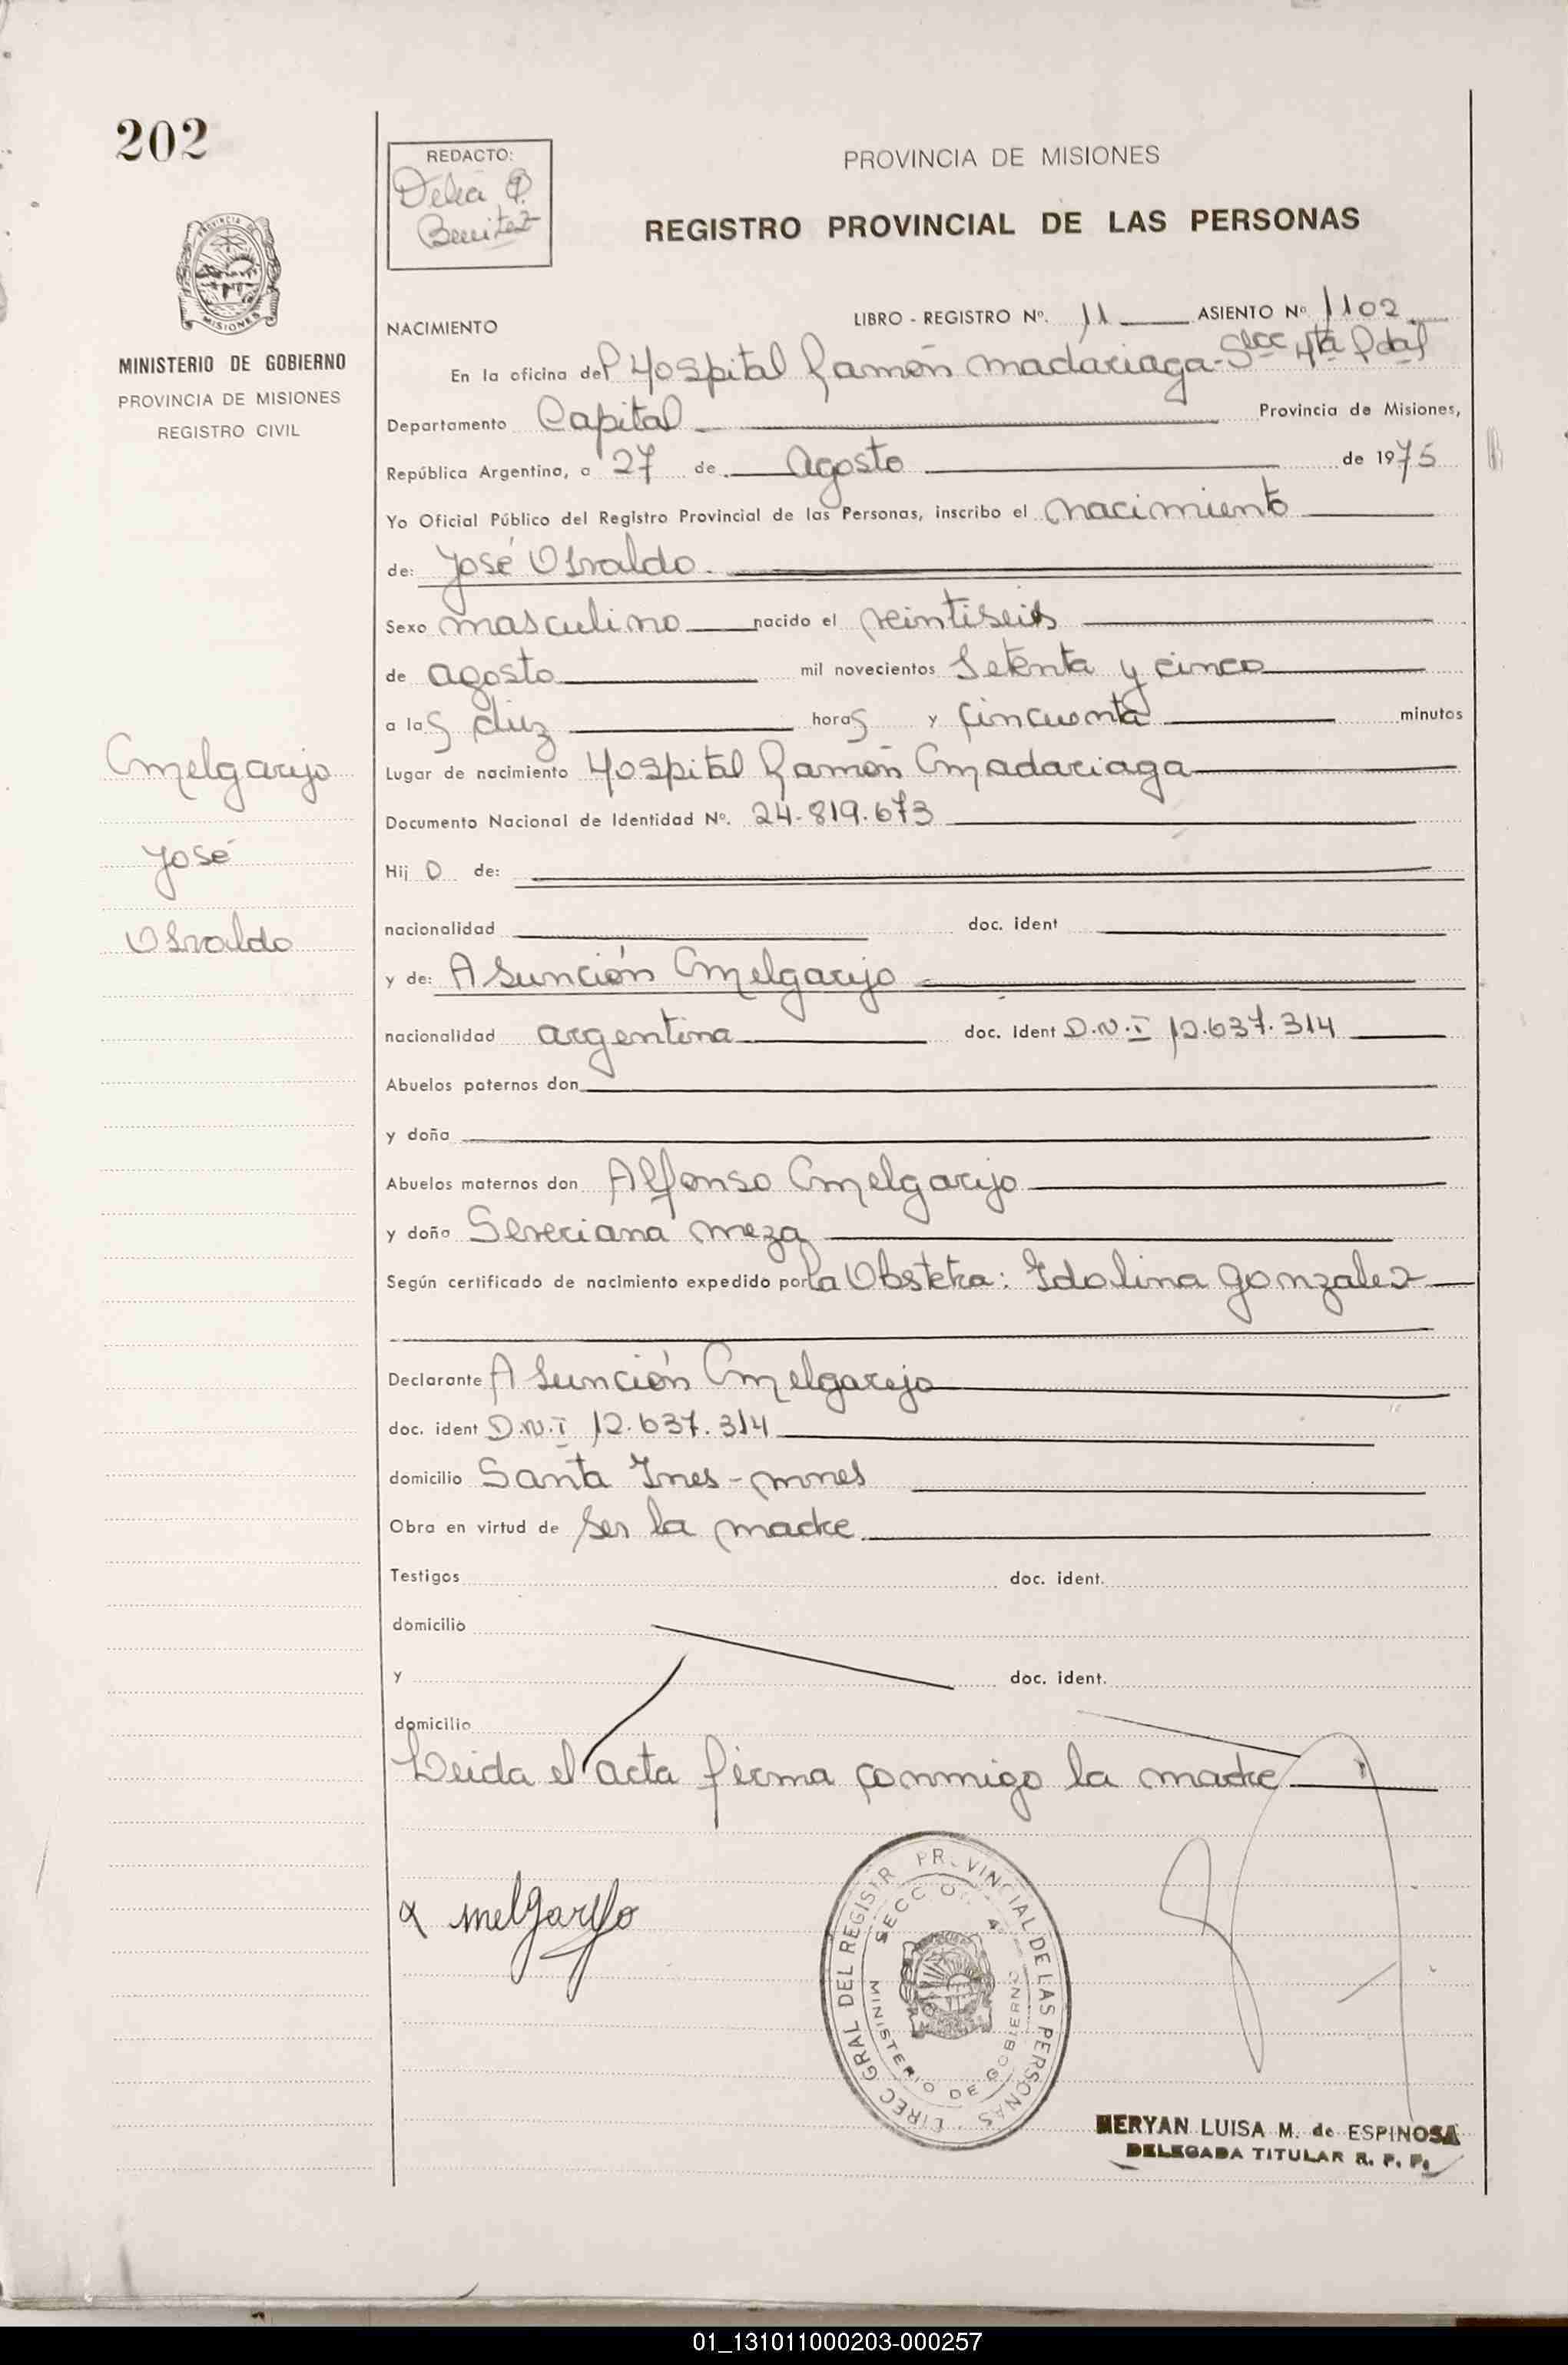 202
REDACTO:
Delia
Benitez
PROVINCIA DE MISIONES
REGISTRO PROVINCIAL DE LAS PERSONAS
MINISTERIO DE GOBIERNO
PROVINCIA DE MISIONES
REGISTRO CIVIL
NACIMIENTO LIBRO - REGISTRO Nº. 11 ASIENTO Nº 1102
En la oficina del Hospital Ramón Madariaga - Secc 4ta Pdas
Departamento Capital Provincia de Misiones,
República Argentina, a 27 de Agosto de 1975
Yo Oficial Público del Registro Provincial de las Personas, inscribo el nacimiento
de: José Osvaldo.
Sexo masculino nacido el veintiseis
de agosto mil novecientos setenta y cinco
a las diez horas y cincuenta minutos
Melgarejo
José
Osvaldo
Lugar de nacimiento Hospital Ramón Madariaga
Documento Nacional de Identidad Nº. 24.819.673
Hijo de:
nacionalidad doc. ident
y de: Asunción Melgarejo
nacionalidad argentina doc. ident D.N.I 12.637.314
Abuelos paternos don
y doña
Abuelos maternos don Alfonso Melgarejo
y doña Severiana Meza
Según certificado de nacimiento expedido por la Obstetra: Idolina Gonzalez
Declarante Asunción Melgarejo
doc. ident D.N.I 12.637.314
domicilio Santa Ines - Mnes
Obra en virtud de ser la madre
Testigos doc. ident.
domicilio
y doc. ident.
domicilio
Leida el acta firma conmigo la madre
A Melgarejo
DIREC GRAL DEL REGISTR PROVINCIAL DE LAS PERSONAS
SECCION 4ª
MINISTERIO DE GOBIERNO
MERYAN LUISA M. de ESPINOSA
DELEGADA TITULAR R. P. P.
01_131011000203-000257